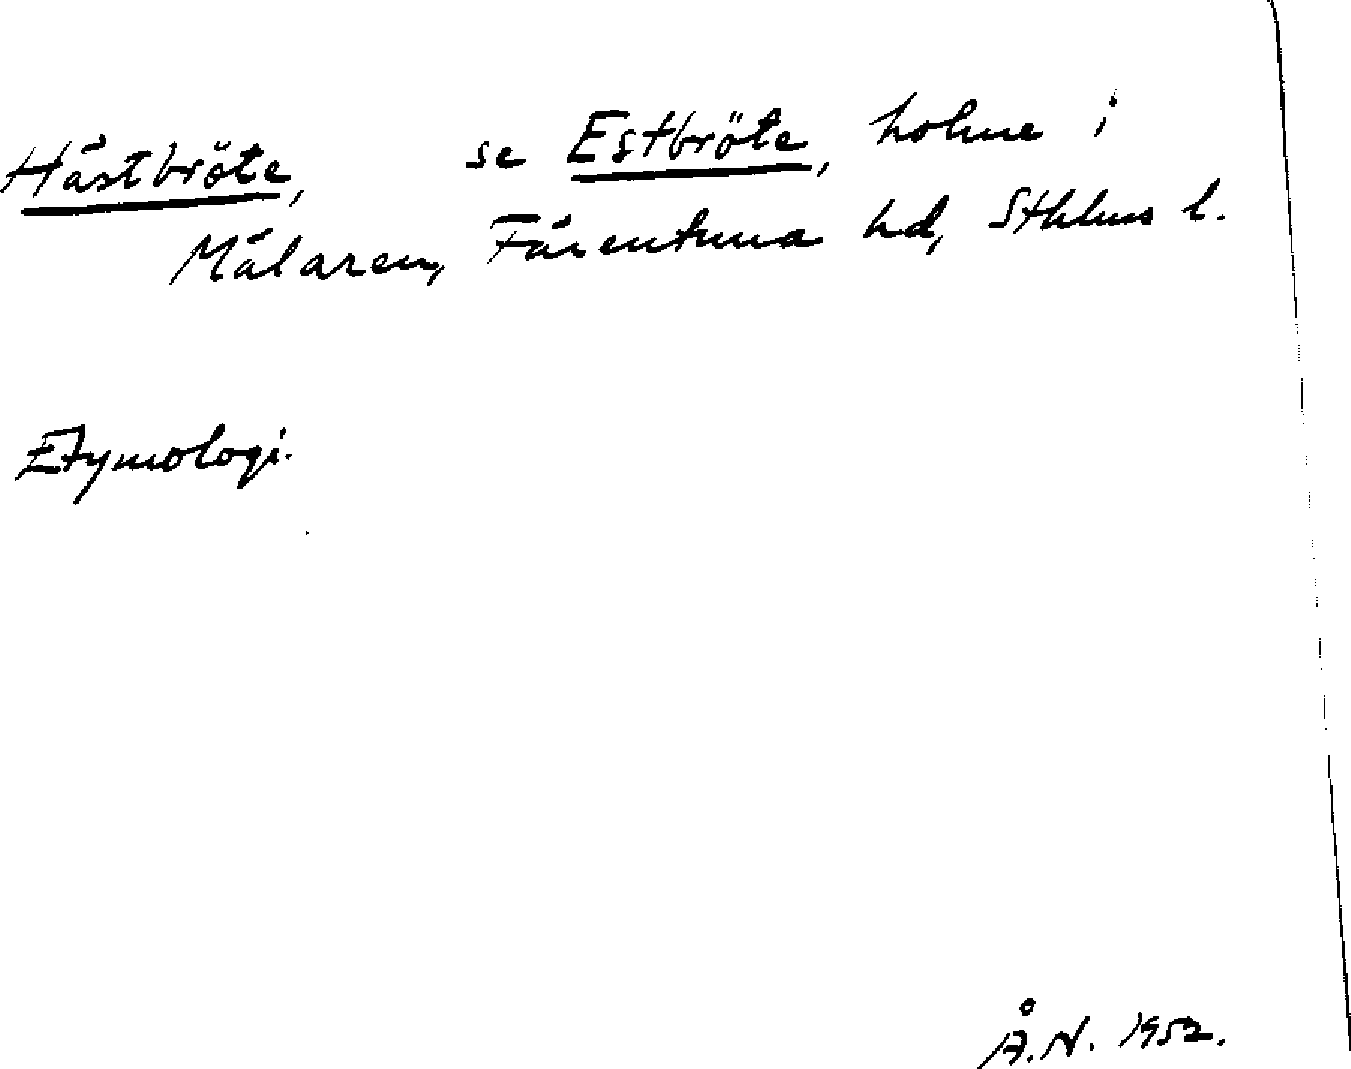 Hästbröte, se Estbröte, holme i
Mälaren, Färentuna hd, Sthlms l.
Etymologi.
Å.N. 1952.